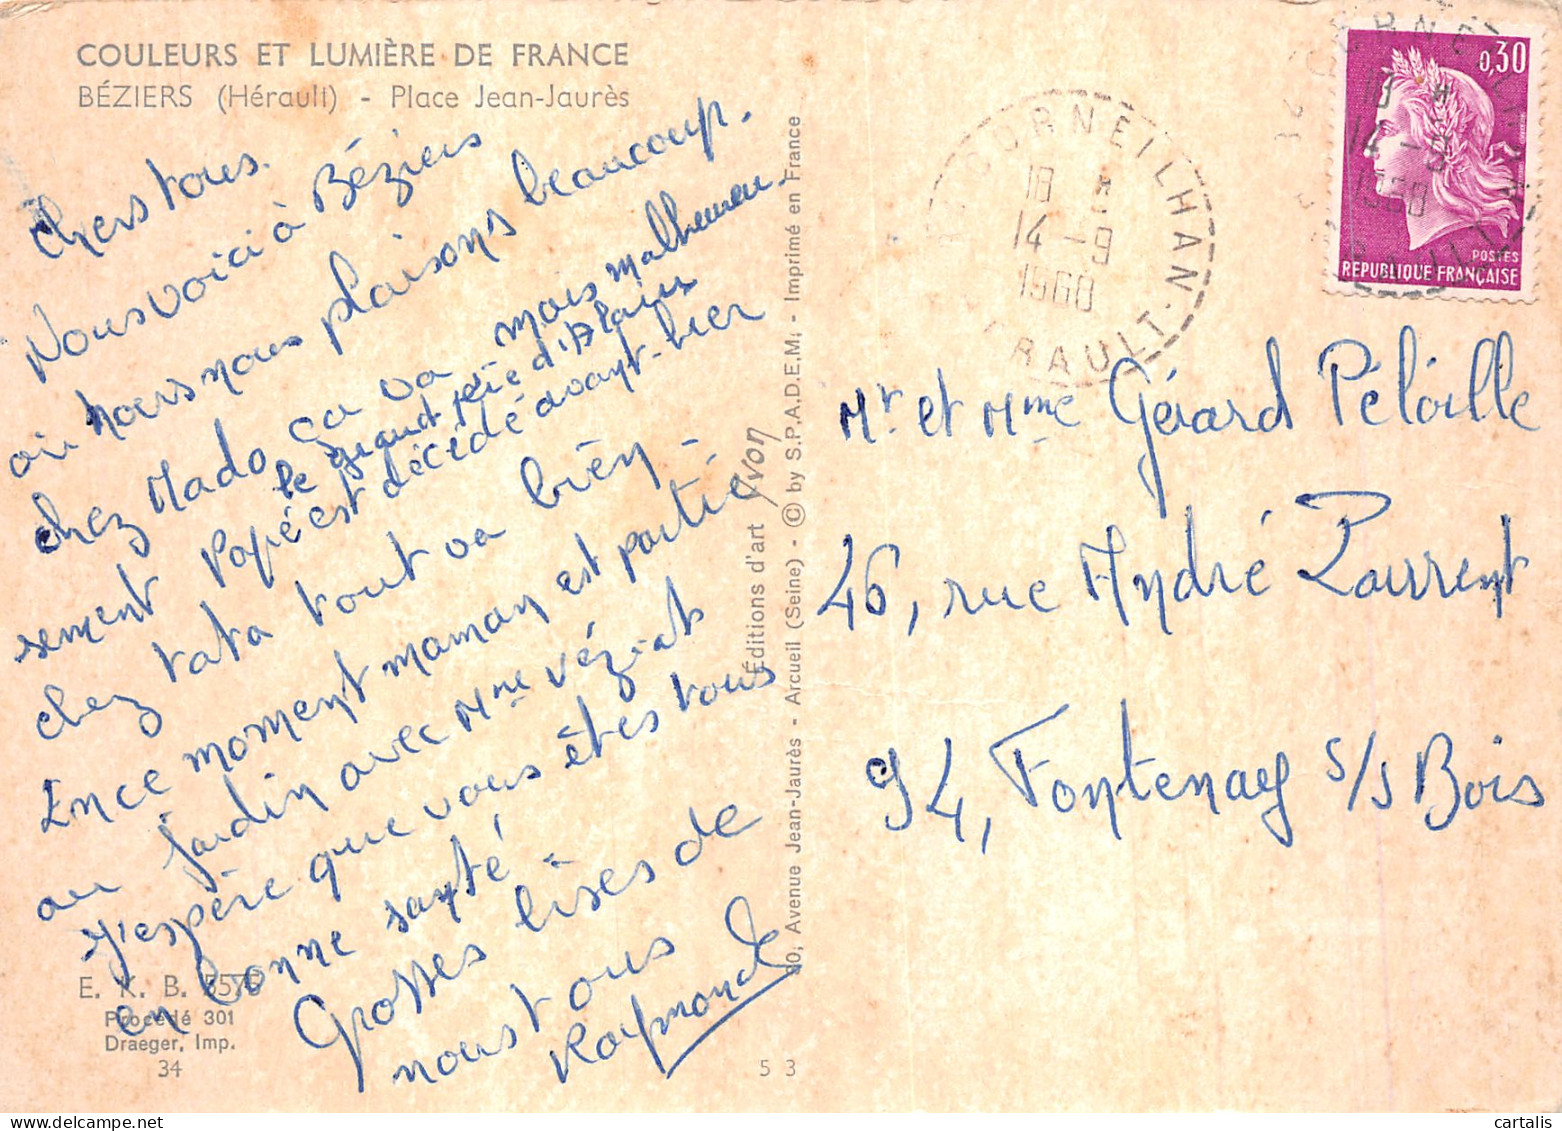 COULEURS ET LUMIÈRE DE FRANCE
BÉZIERS (Hérault) - Place Jean-Jaurès
Chers tous.
Nous voici à Béziers
où nous nous plaisons beaucoup.
chez Mado ça va mais malheureu-
sement Papé est décédé avant-hier
le grand père d'Alain
chez tata tout va bien -
En ce moment maman est partie
au jardin avec Mme Véziat
J'espère que vous êtes tous
en bonne santé.
Grosses bises de
nous tous
Raymonde
E. K. B.
Procédé 301
Draeger, Imp.
34
5 3
Éditions d'art Yvon
Avenue Jean-Jaurès - Arcueil (Seine) - © by S.P.A.D.E.M. - Imprimé en France
CORNEILHAN
18 *
14 - 9
1968
HÉRAULT
0,30
POSTES
REPUBLIQUE FRANÇAISE
Mr et Mme Gérard Péloille
46, rue André Laurent
94, Fontenay s/s Bois
cartalis